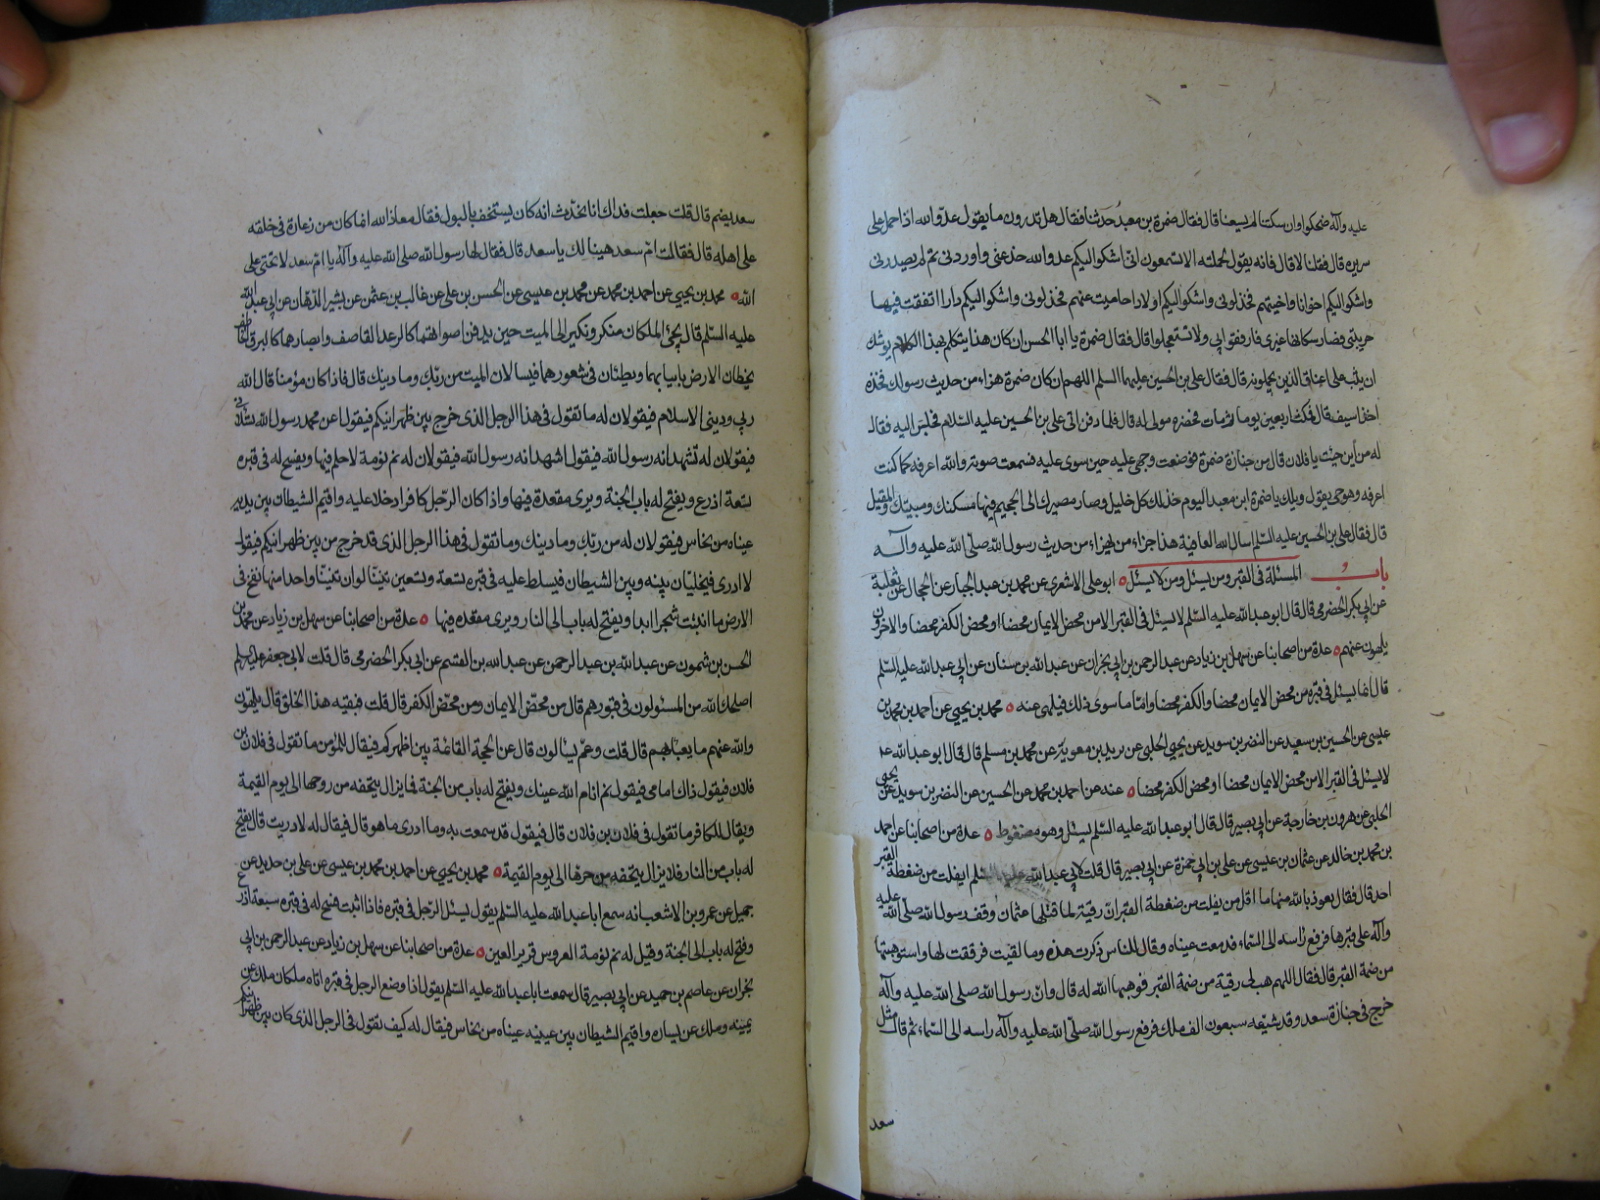 عليه وآله ضحكوا وان سكت لم يسعنا قال فقال ضمرة بن معبد حدثنا فقال هل تدرون ما يقول عدو الله اذا حمل على
سريره قال فقلنا لا قال فانه يقول لحملته الا تسمعون انى اشكو اليكم عدو الله خدعنى واوردنى ثم لم يصدرنى
واشكو اليكم اخوانا واخيتهم فخذلونى واشكو اليكم اولادا حاميت عنهم فخذلونى واشكو اليكم دارا انفقت فيها
حريبتى فصار سكانها غيرى فارفقوا بى ولا تستعجلوا قال فقال ضمرة يا ابا الحسن ان كان هذا يتكلم بهذا الكلام يوشك
ان يثب على اعناق الذين يحملونه قال فقال على بن الحسين عليهما السلم اللهم ان كان ضمرة هزاء من حديث رسولك فخذه
اخذ اسيف قال فمكث اربعين يوما ثم مات فحضره مولى له قال فلما دفن اتى على بن الحسين عليه السلام فجلس اليه فقال
له من اين جئت يا فلان قال من جنازة ضمرة فوضعت وجهى عليه حين سوى عليه فسمعت صوته والله اعرفه كما كنت
اعرفه وهو حى يقول ويلك يا ضمرة ابن معبد اليوم خذلك كل خليل وصار مصيرك الى الجحيم فيها مسكنك ومبيتك والمقيل
قال فقال على بن الحسين عليه السلم اسال الله العافية هذا جزاء من يهزاء من حديث رسول الله صلى الله عليه وآله
باب المسئلة فى القبر ومن يسئل ومن لا يسئل ابو على الاشعرى عن محمد بن عبد الجبار عن الحجال عن ثعلبة
عن ابى بكر الحضرمى قال قال ابو عبد الله عليه السلم لا يسئل فى القبر الا من محض الايمان محضا او محض الكفر محضا والاخرون
يلهون عنهم عدة من اصحابنا عن سهل بن زياد عن عبد الرحمن بن ابى نجران عن عبد الله بن سنان عن ابى عبد الله عليه السلم
قال انما يسئل فى قبره من محض الايمان محضا والكفر محضا واما ما سوى ذلك فيلهى عنه محمد بن يحيى عن احمد بن محمد بن
عيسى عن الحسين بن سعيد عن النضر بن سويد عن يحيى الحلبى عن بريد بن معوية عن محمد بن مسلم قال قال ابو عبد الله ع
لا يسئل فى القبر الا من محض الايمان محضا او محض الكفر محضا عنه عن احمد بن محمد عن الحسين عن النضر بن سويد عن يحيى
الحلبى عن هرون بن خارجة عن ابى بصير قال قال ابو عبد الله عليه السلم يسئل وهو مضغوط عدة من اصحابنا عن احمد
بن محمد بن خالد عن عثمان بن عيسى عن على بن ابى حمزة عن ابى بصير قال قلت لابى عبد الله عليه السلم ايفلت من ضغطة القبر
احد قال فقال نعوذ بالله منها ما اقل من يفلت من ضغطة القبر ان رقية لما قتلها عثمان وقف رسول الله صلى الله عليه
وآله على قبرها فرفع راسه الى السماء فدمعت عيناه وقال للناس ذكرت هذه وما لقيت فرققت لها واستوهبتها
من ضمة القبر قال فقال اللهم هب لى رقية من ضمة القبر فوهبها الله له قال وان رسول الله صلى الله عليه وآله
خرج فى جنازة سعد وقد شيعه سبعون الف ملك فرفع رسول الله صلى الله عليه وآله راسه الى السماء ثم قال مثل
سعد
سعد يضم قال قلت جعلت فداك انا نحدث انه كان يستخف بالبول فقال معاذ الله انما كان من زعارة فى خلقه
على اهله قال فقالت ام سعد هنيئا لك يا سعد قال فقال لها رسول الله صلى الله عليه وآله يا ام سعد لا تحتمى على
الله محمد بن يحيى عن احمد بن محمد عن محمد بن عيسى عن الحسن بن على عن غالب بن عثمن عن بشير الدهان عن ابى عبد الله
عليه السلم قال يجئ الملكان منكر ونكير الى الميت حين يدفن اصواتهما كالرعد القاصف وابصارهما كالبرق الخاطف
يخطان الارض بانيابهما ويطئان فى شعورهما فيسالان الميت من ربك وما دينك قال فاذا كان مؤمنا قال الله
ربى ودينى الاسلام فيقولان له ما تقول فى هذا الرجل الذى خرج بين ظهرانيكم فيقول اعن محمد رسول الله تسئلانى
فيقولان له تشهد انه رسول الله فيقول اشهد انه رسول الله فيقولان له نم نومة لا حلم فيها ويفسح له فى قبره
تسعة اذرع ويفتح له باب الجنة ويرى مقعده فيها واذا كان الرجل كافرا دخلا عليه واقيم الشيطان بين يديه
عيناه من نحاس فيقولان له من ربك وما دينك وما تقول فى هذا الرجل الذى قد خرج من بين ظهرانيكم فيقول
لا ادرى فيخليان بينه وبين الشيطان فيسلط عليه فى قبره تسعة وتسعين تنينا لو ان تنينا واحدا منها نفخ فى
الارض ما انبتت شجرا ابدا ويفتح له باب الى النار ويرى مقعده فيها عدة من اصحابنا عن سهل بن زياد عن محمد بن
الحسن بن شمون عن عبد الله بن عبد الرحمن عن عبد الله بن القسم عن ابى بكر الحضرمى قال قلت لابى جعفر عليه السلم
اصلحك الله من المسئولون فى قبورهم قال من محض الايمان ومن محض الكفر قال قلت فبقية هذا الخلق قال يلهون
والله عنهم ما يعبا بهم قال قلت وعم يسالون قال عن الحجة القائمة بين اظهركم فيقال للمؤمن ما تقول فى فلان بن
فلان فيقول ذاك امامى فيقول نم انام الله عينك ويفتح له باب من الجنة فما يزال يتحفه من روحها الى يوم القيمة
ويقال للكافر ما تقول فى فلان بن فلان قال فيقول قد سمعت به وما ادرى ما هو قال فيقال له لا دريت قال يفتح
له باب من النار فلا يزال يتحفه من حرها الى يوم القيمة محمد بن يحيى عن احمد بن محمد بن عيسى عن على بن حديد عن
جميل عن عمرو بن الاشعب انه سمع ابا عبد الله عليه السلم يقول يسئل الرجل فى قبره فاذا اثبت فسح له فى قبره سبعة اذرع
وفتح له باب الى الجنة وقيل له نم نومة العروس قرير العين عدة من اصحابنا عن سهل بن زياد عن عبد الرحمن بن ابى
نجران عن عاصم بن حميد عن ابى بصير قال سمعت ابا عبد الله عليه السلم يقول اذا وضع الرجل فى قبره اتاه ملكان ملك عن
يمينه وملك عن يساره واقيم الشيطان بين عينيه عيناه من نحاس فيقال له كيف تقول فى الرجل الذى كان بين ظهرانيكم